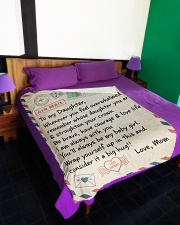 AIR MAIL
To my Daughter,
Whenever you feel overwhelmed
remember whose daughter you are
& straighten your crown
Be brave, have courage & love life
I am always with you
You'll always be my baby girl
Wrap yourself up in this and
consider it a big hug!!
Love, Mom